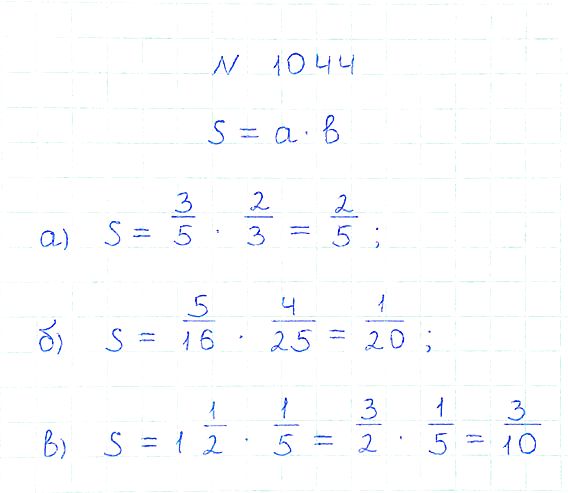 N 1044
S = a · b
а) S = 3/5 · 2/3 = 2/5 ;
б) S = 5/16 · 4/25 = 1/20 ;
в) S = 1 1/2 · 1/5 = 3/2 · 1/5 = 3/10